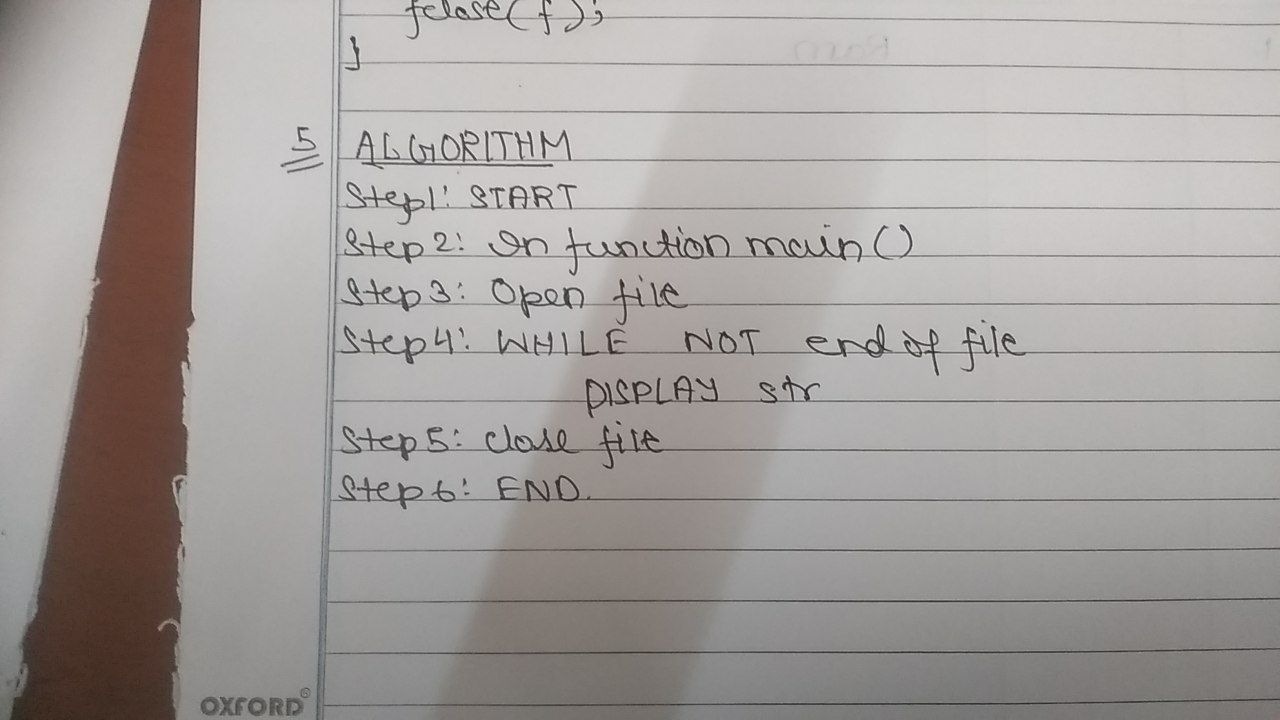 fclose(f);
}
5 ALGORITHM
Step1: START
Step 2: In function main()
Step 3: Open file
Step4: WHILE NOT end of file
DISPLAY str
Step 5: close file
Step 6: END.
OXFORD®